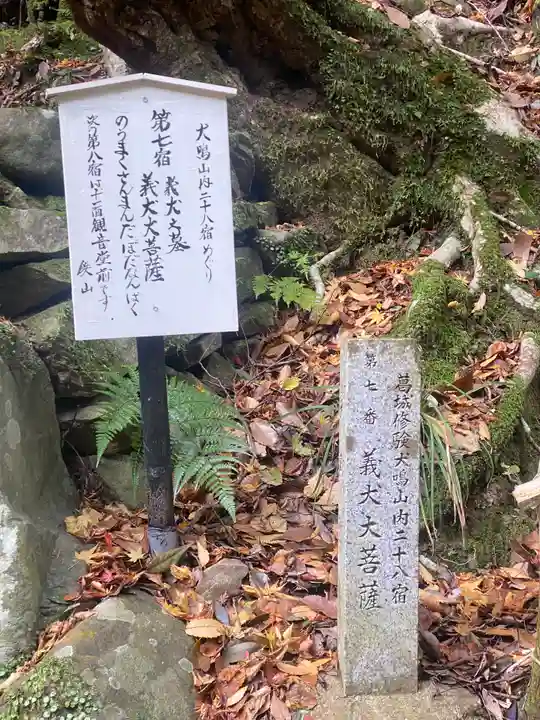 犬鳴山内二十八宿めぐり
第七宿 義犬之墓
義犬大菩薩
のうまくさんまんだぼだなんばく
次の第八宿は十一面観音堂前です。
葛城修験犬鳴山内二十八宿
第七番 義犬大菩薩